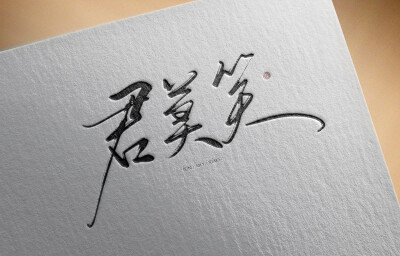 君莫笑